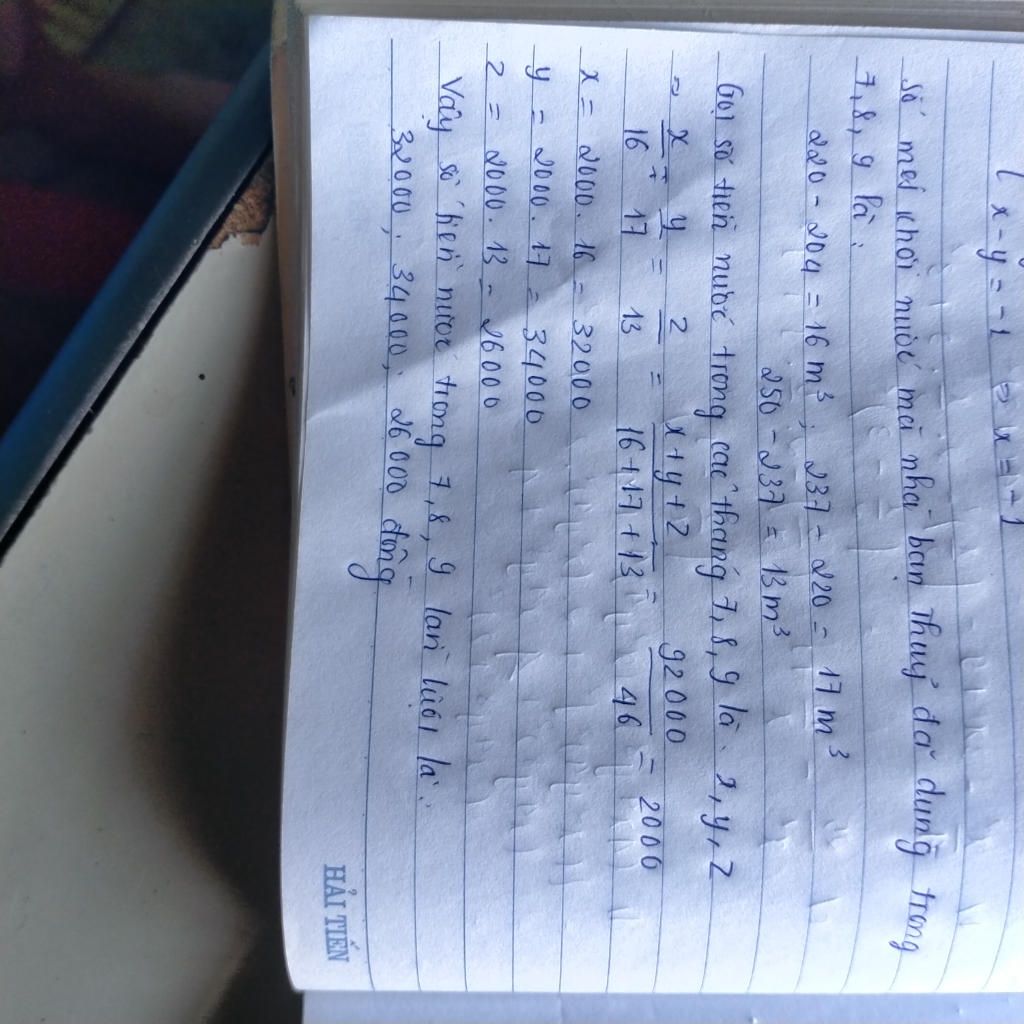 x - y = -1 => x = -1
số mét khối nước mà nhà bạn Thuỷ đã dùng trong
7, 8, 9 là :
220 - 204 = 16 m³ ; 237 - 220 = 17 m³
250 - 237 = 13 m³
Gọi số tiền nước trong các tháng 7, 8, 9 là x, y, z
=> x/16 = y/17 = z/13 = x+y+z/16+17+13 = 92000/46 = 2000
x = 2000 . 16 = 32000
y = 2000 . 17 = 34000
z = 2000 . 13 = 26000
Vậy số tiền nước trong 7, 8, 9 lần lượt là :
32000 ; 34000 ; 26000 đồng
HẢI TIẾN